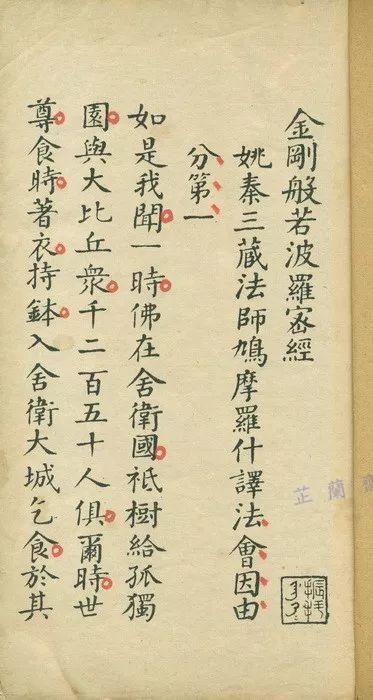 金剛般若波羅密經
姚秦三藏法師鳩摩羅什譯法會因由
分第一
如是我聞一時佛在舍衛國祗樹給孤獨
園與大比丘眾千二百五十人俱爾時世
尊食時著衣持鉢入舍衛大城乞食於其
芷蘭